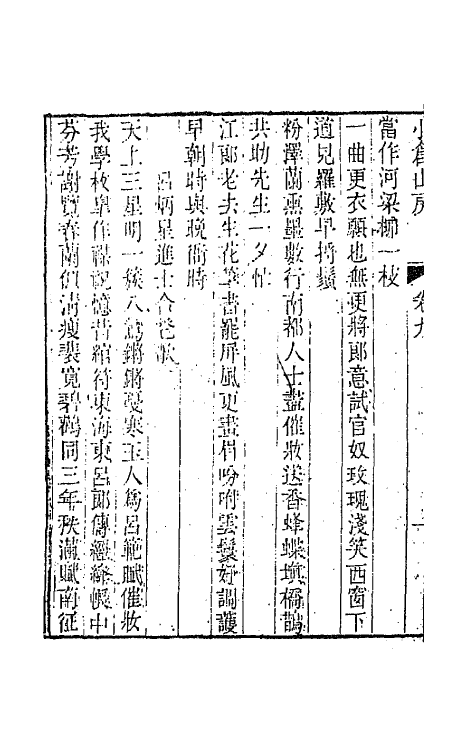 小倉山房　卷九
當作河梁柳一枝
一曲更衣願也無更將郎意試官奴玫瑰淺笑西窗下
道見羅敷早捋鬚
粉澤蘭熏墨數行南都人士盡催妝送香蜂蝶塡橋鵲
共助先生一夕忙
江郎老去生花筆書罷屏風更畫眉吩咐雲鬟好調護
早朝時與晚衙時
呂炳星進士合卺歌
天上三星明一簇八鸞鏘鏘戞寒玉人爲呂範賦催妝
我學枚臯作禖祝憶昔綰符東海東呂郎傳經絳帳中
芬芳謝覽春蘭似淸瘦裴寬碧鸛同三年秩滿賦南征